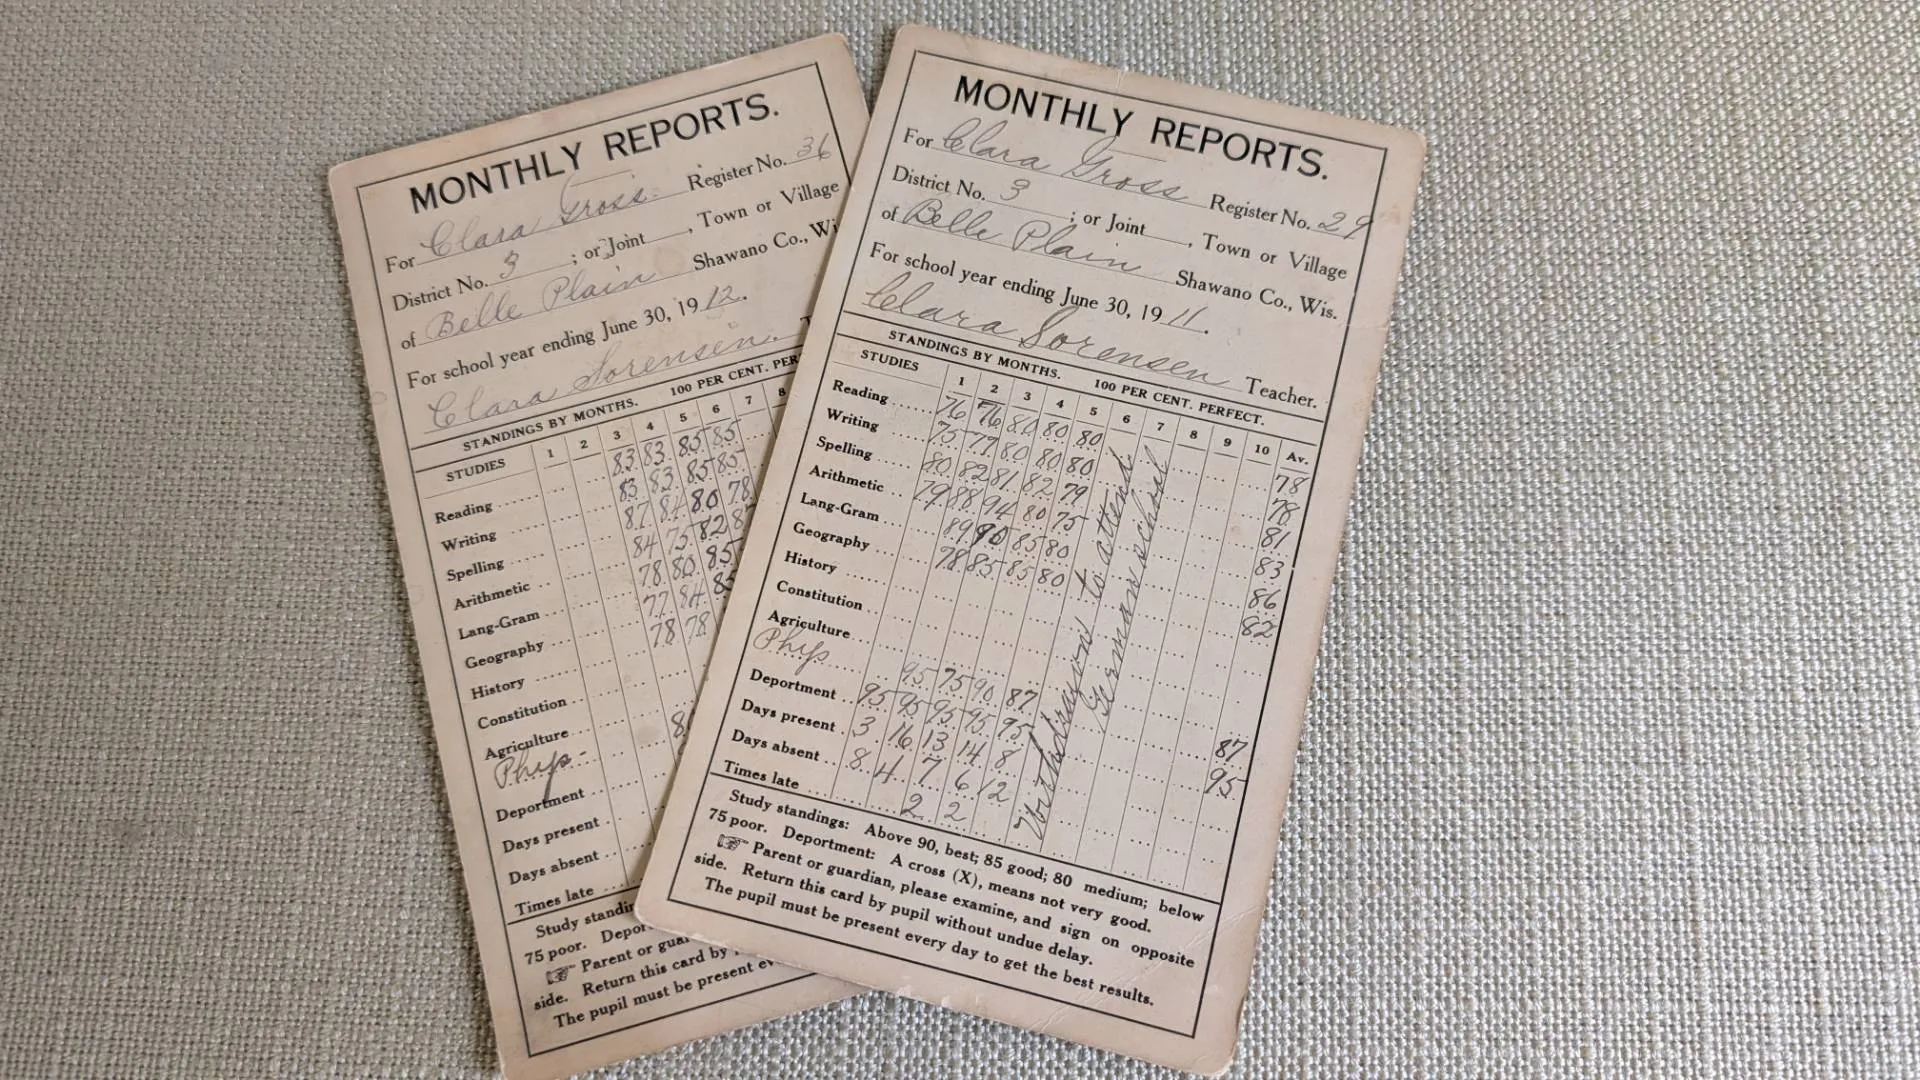 MONTHLY REPORTS.
For Clara Gross Register No. 36
District No. 3 ; or Joint , Town or Village
of Belle Plain Shawano Co., Wi
For school year ending June 30, 1912.
Clara Sorensen.
STANDINGS BY MONTHS. 100 PER CENT. PER
STUDIES 1 2 3 4 5 6 7 8
Reading 83 83 85 85
Writing 83 83 85 85
Spelling 87 84 80 78
Arithmetic 84 75 82
Lang-Gram 78 80 85
Geography 77 84 85
History 78 78
Constitution
Agriculture
Phys-
Deportment
Days present
Days absent
Times late
Study standin
75 poor. Depor
☞ Parent or guar
side. Return this card by
The pupil must be present ev
MONTHLY REPORTS.
For Clara Gross Register No. 29
District No. 3 ; or Joint , Town or Village
of Belle Plain Shawano Co., Wis.
For school year ending June 30, 1911.
Clara Sorensen Teacher.
STANDINGS BY MONTHS. 100 PER CENT. PERFECT.
STUDIES 1 2 3 4 5 6 7 8 9 10 Av.
Reading 76 76 80 80 80 78
Writing 75 77 80 80 80 78
Spelling 80 82 81 82 79 81
Arithmetic 79 88 94 80 75 83
Lang-Gram 89 90 85 80 86
Geography 78 85 85 80 82
History
Constitution
Agriculture
Phys. 95 75 90 87 87
Deportment 95 95 95 95 95 95
Days present 3 16 13 14 8
Days absent 8 4 7 6 12
Times late 2 2
Withdrawn to attend
German school
Study standings: Above 90, best; 85 good; 80 medium; below
75 poor. Deportment: A cross (X), means not very good.
☞ Parent or guardian, please examine, and sign on opposite
side. Return this card by pupil without undue delay.
The pupil must be present every day to get the best results.